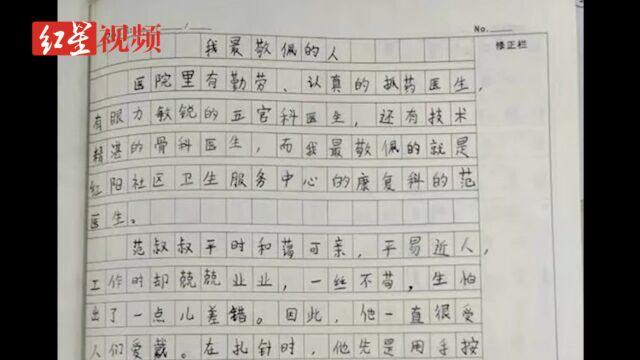 红星视频
No.
修正栏
我最敬佩的人
医院里有勤劳、认真的抓药医生，
有眼力敏锐的五官科医生，还有技术
精湛的骨科医生，而我最敬佩的就是
红阳社区卫生服务中心的康复科的范
医生。
范叔叔平时和蔼可亲，平易近人，
工作时却兢兢业业，一丝不苟，生怕
出了一点儿差错。因此，他一直很受
人们爱戴。在扎针时，他先是用手按